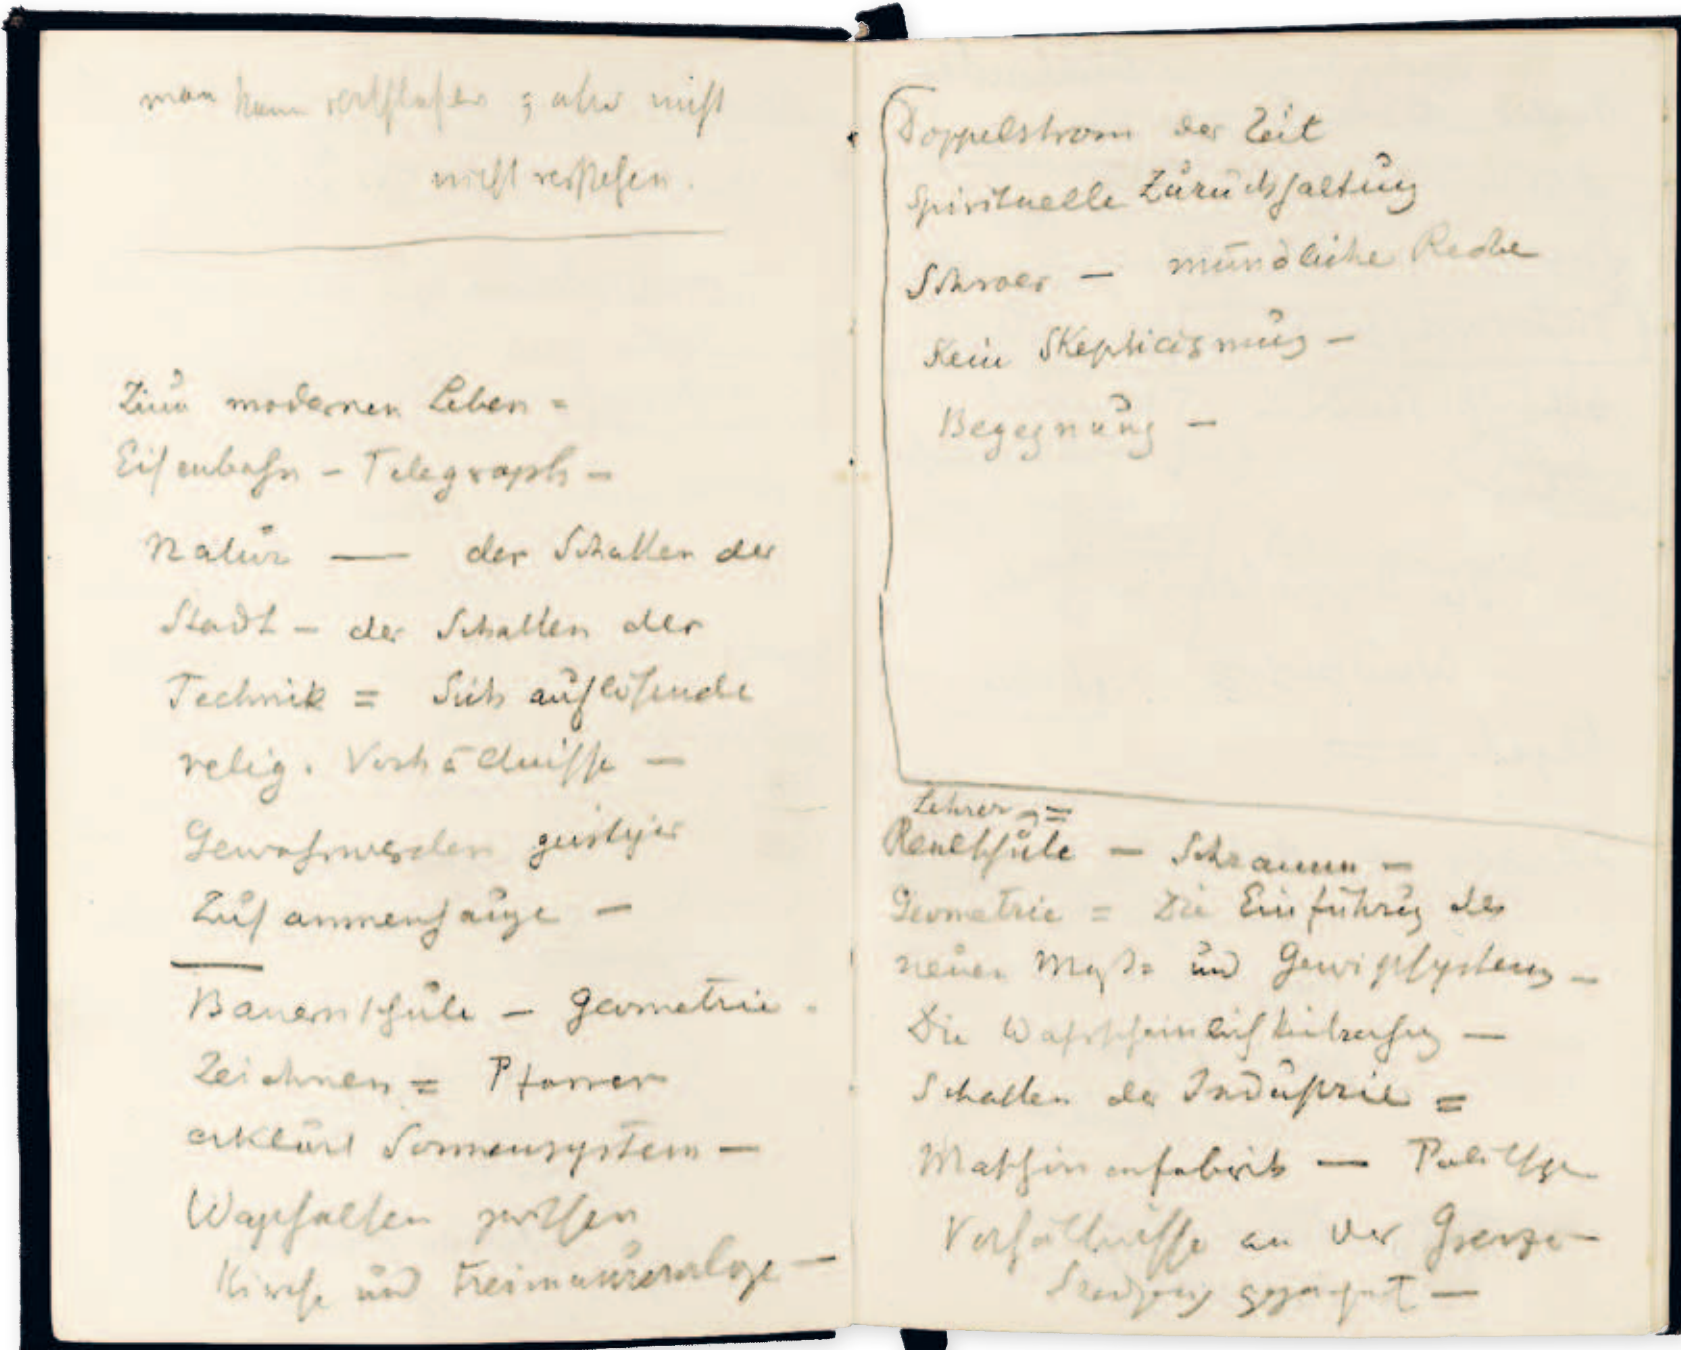 man kann verschlafen; aber nicht
nicht verstehen.
Zum modernen Leben =
Eisenbahn – Telegraph –
Natur — der Schatten der
Stadt – der Schatten der
Technik = Sich auflösende
relig. Verhältnisse —
Gewahrwerden geistiger
Zusammenhänge –
Bauernschule – Geometrie.
Zeichnen = Pfarrer
erklärt Sonnensystem —
Wagehalten zwischen
Kirche und Freimaurerloge —
Doppelstrom der Zeit
Spirituelle Zurückhaltung
Schroer – mündliche Rede
Kein Skepticismus –
Begegnung –
Lehrer =
Realschule – Schramm –
Geometrie = Die Einführung des
neuen Maß= und Gewichtsystems –
Die Wahrscheinlichkeitsrechng —
Schatten der Industrie =
Maschinenfabrik — Politische
Verhältnisse an der Grenze –